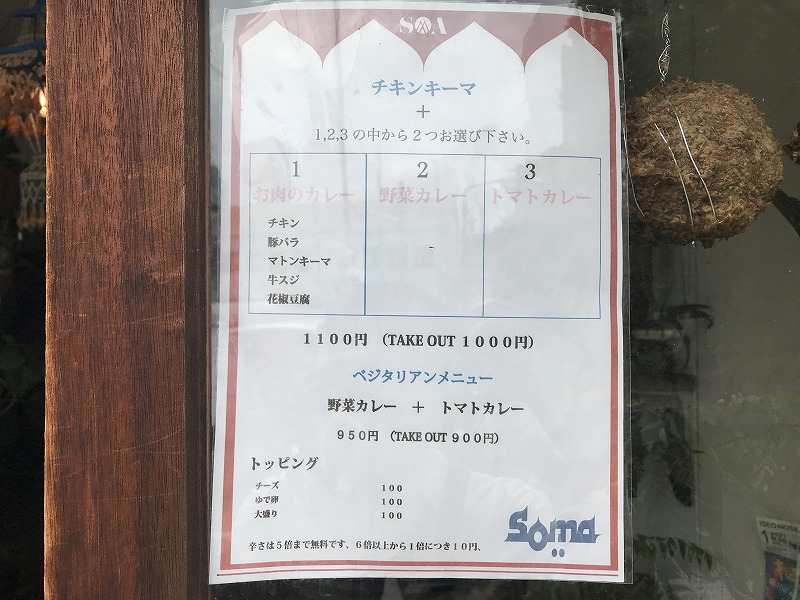 SOA
チキンキーマ
＋
1,2,3の中から２つお選び下さい。
1 2 3
お肉のカレー 野菜カレー トマトカレー
チキン
豚バラ
マトンキーマ
牛スジ
花椒豆腐
１１００円 （TAKE OUT １０００円）
ベジタリアンメニュー
野菜カレー ＋ トマトカレー
９５０円 （TAKE OUT ９００円）
トッピング
チーズ １００
ゆで卵 １００
大盛り １００
辛さは５倍まで無料です、６倍以上から１倍につき１０円、
Soma